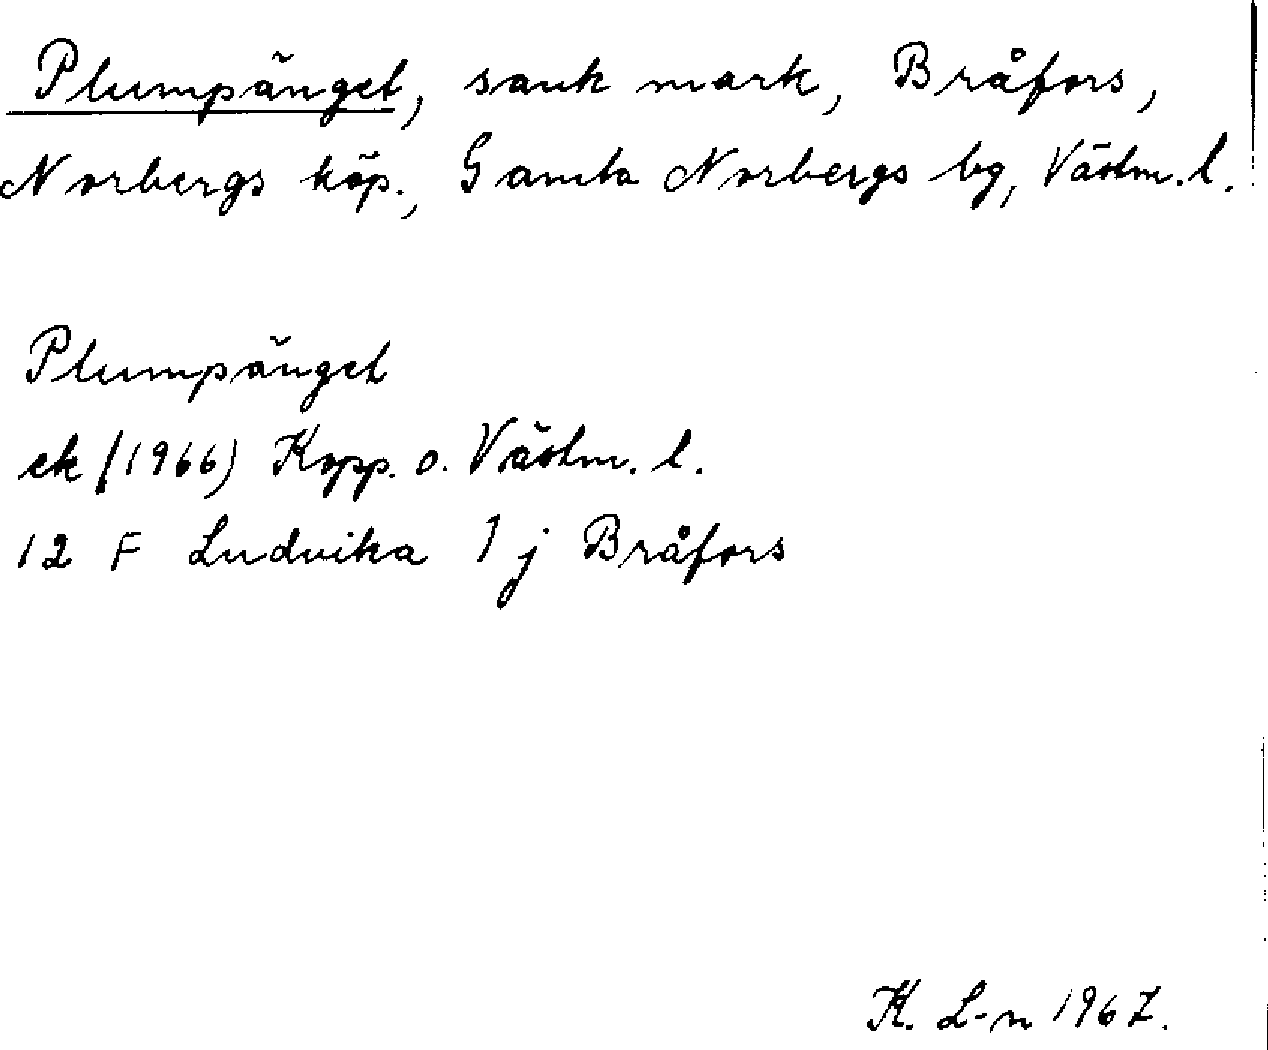 Plumpänget, sank mark, Bråfors,
Norbergs köp., Gamla Norbergs bg, Västm. l.
Plumpänget
ek (1966) Kopp. o. Västm. l.
12 F Ludvika 1 j Bråfors
K. L-n 1967.